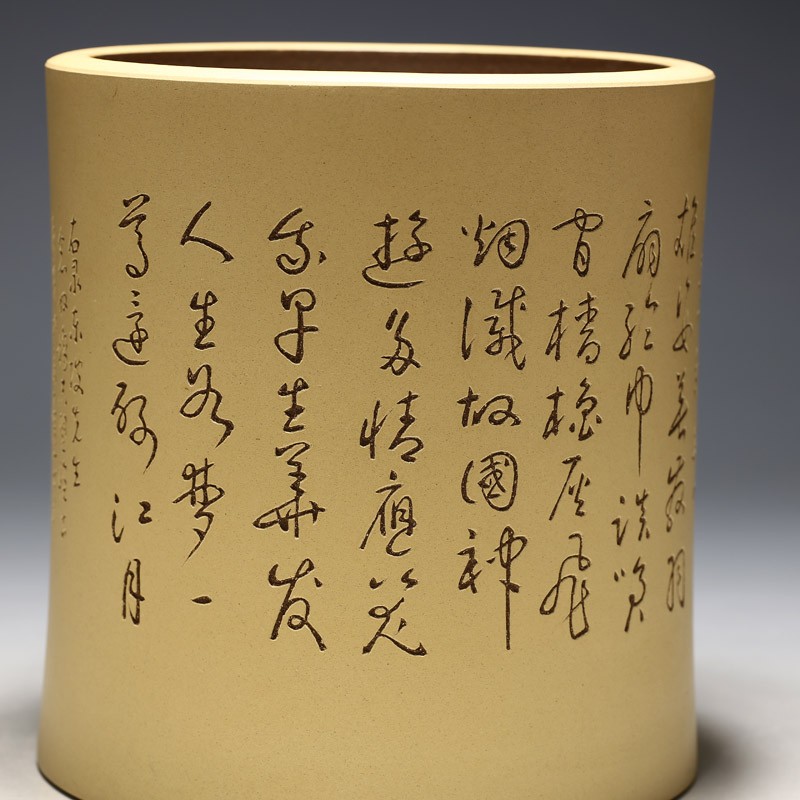 雄姿英發羽
扇綸巾談笑
間檣櫓灰飛
烟滅故國神
遊多情應笑
我早生華发
人生如梦一
尊還酹江月
右录東坡先生